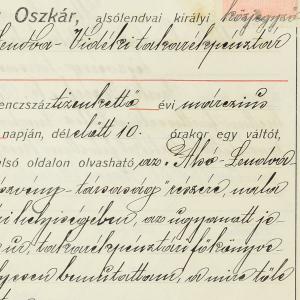 Oszkár, alsólendvai királyi közjegyző
Lendva-Vidéki takarékpénztár
enczszáz tizenkettő évi március
napján, dél előtt 10. órakor egy váltót,
lső oldalon olvasható, az "Alsó-Lendva
szvény-társaság" részére, nála
i helyiségében, az ugyanott je-
ur, takarékpénztári főkönyve
lyesen bemutattam, a mire tőle